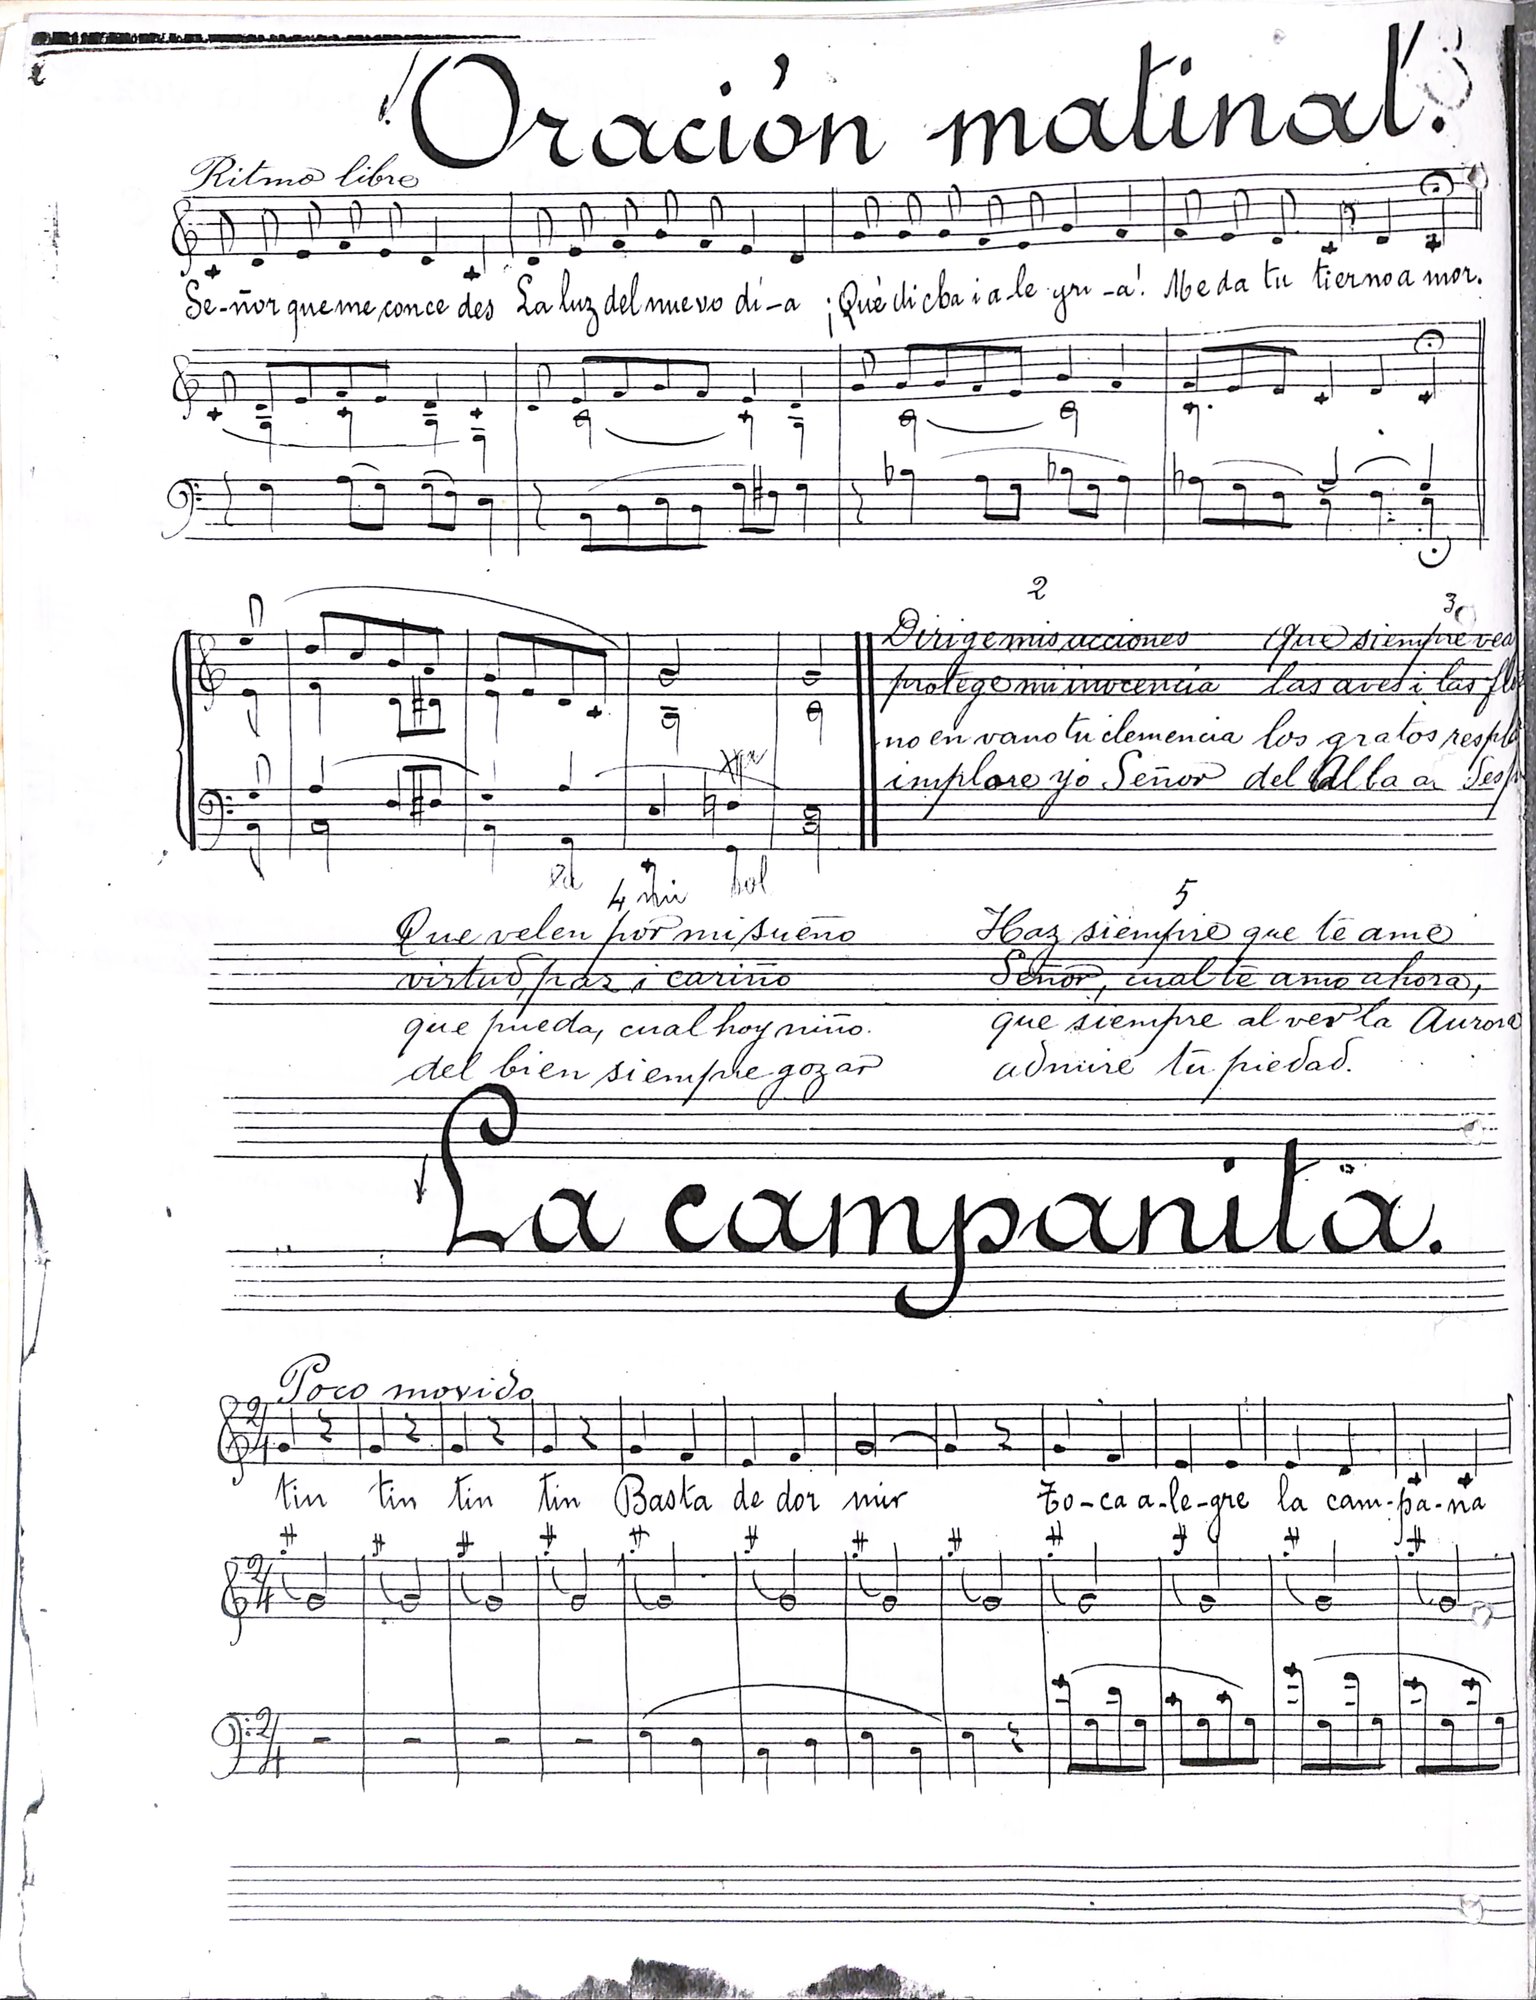 Oración matinal.
Ritmo libre
Se-ñor que me conce des La luz del nuevo dí-a ¡Qué dicha i a-le grí-a! Me da tu tierno a mor.
2
3
Dirige mis acciones Que siempre vea
protege mi inocencia las aves i las
no en vano tu clemencia los gratos
implore yo Señor del Alba
mi sol
4
5
Que velen por mi sueño Haz siempre que te ame
virtud, paz i cariño Señor, cual te amo ahora,
que pueda, cual hoy niño. que siempre al ver la Aurora
del bien siempre gozar admire tu piedad.
La campanita.
Poco movido
2/4
tin tin tin tin Basta de dor mir To-ca a-le-gre la cam-pa-na
2/4
2/4